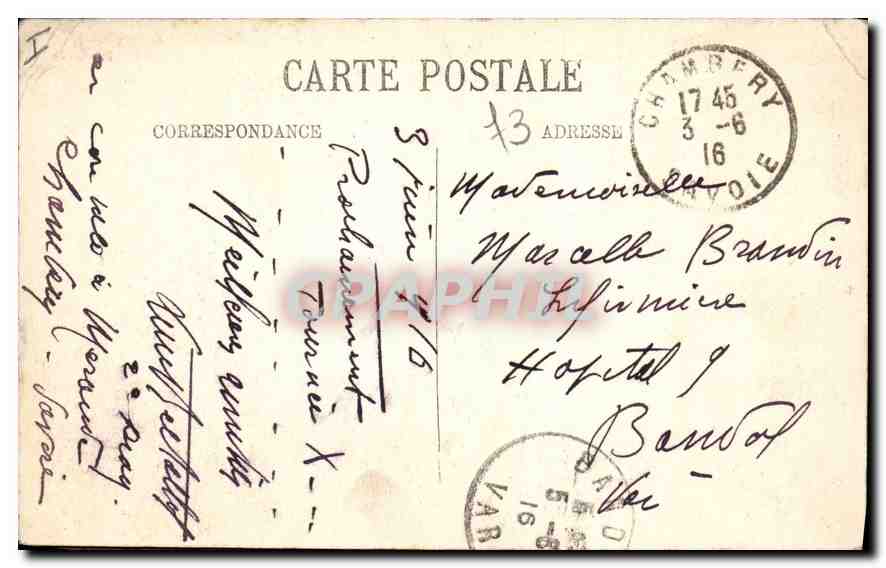 I
CARTE POSTALE
CORRESPONDANCE
73
ADRESSE
CHAMBERY
17 45
3 -6
16
SAVOIE
3 juin 1916
Prochainement
Tournée X - - -
- - - - - - - -
2e Drag.
en convales à Mérande
Chambéry - Savoie
Mademoiselle
Marcelle Brandin
Infirmière
Hopital 9
Bandol
Var
CPAPHIL
BANDOL
5 -6
16
VAR